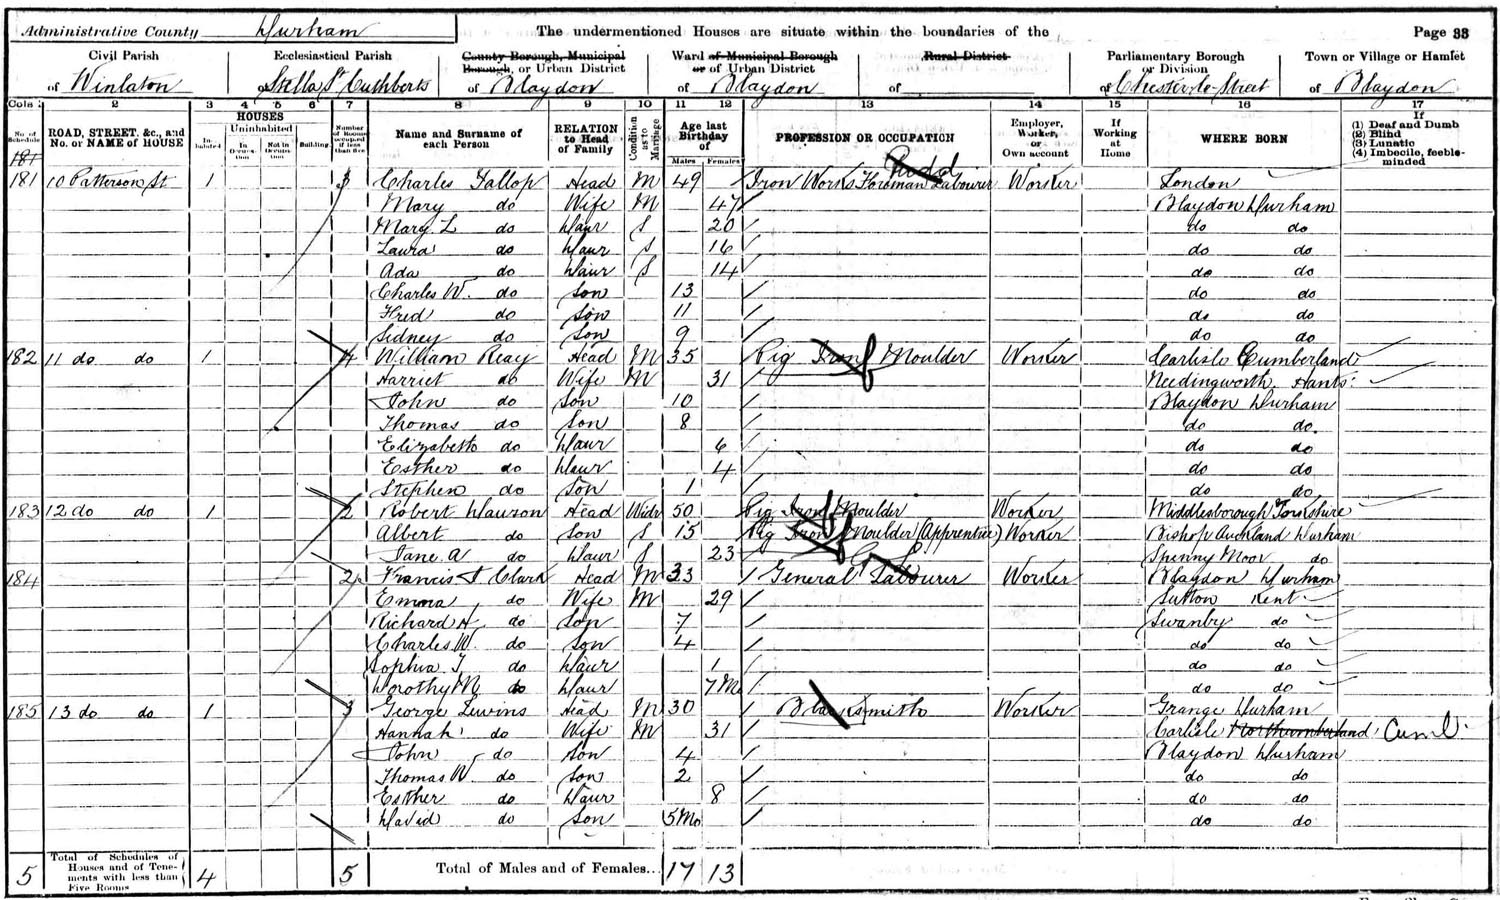 Administrative County Durham The undermentioned Houses are situate within the boundaries of the Page 33
Civil Parish Ecclesiastical Parish County Borough, Municipal Borough, or Urban District Ward of Municipal Borough or of Urban District Rural District Parliamentary Borough or Division Town or Village or Hamlet
of Winlaton of Stella St Cuthberts of Blaydon of Blaydon of of Chester-le-Street of Blaydon
Cols. 1 2 3 4 5 6 7 8 9 10 11 12 13 14 15 16 17
No. of Schedule ROAD, STREET, &c., and No. or NAME of HOUSE HOUSES Inhabited Uninhabited In Occupation Not in Occupation Building Number of Rooms occupied if less than five Name and Surname of each Person RELATION to Head of Family Condition as to Marriage Age last Birthday of Males Females PROFESSION OR OCCUPATION Employer, Worker, or Own account If Working at Home WHERE BORN If (1) Deaf and Dumb (2) Blind (3) Lunatic (4) Imbecile, feeble-minded
181
181 10 Patterson St 1 3 Charles Gallop Head M 49 Iron Works Foreman Labourer Worker London
Mary do Wife M 47 Blaydon Durham
Mary L do Daur S 20 do do
Laura do Daur S 16 do do
Ada do Daur S 14 do do
Charles W. do Son 13 do do
Fred do Son 11 do do
Sidney do Son 9 do do
182 11 do do 1 4 William Reay Head M 35 Pig Iron Moulder Worker Carlisle Cumberland
Harriet do Wife M 31 Needingworth Hants
John do Son 10 Blaydon Durham
Thomas do Son 8 do do.
Elizabeth do Daur 6 do do
Esther do Daur 4 do do
Stephen do Son 1 do do
183 12 do do 1 2 Robert Dawson Head Widr 50 Pig Iron Moulder Worker Middlesborough Yorkshire
Albert do Son S 15 Pig Iron Moulder (Apprentice) Worker Bishop Auckland Durham
Jane A do Daur S 23 Spenny Moor do
184 2 Francis J Clark Head M 33 General Labourer Worker Blaydon Durham
Emma do Wife M 29 Sutton Kent
Richard H. do Son 7 Swanby do
Charles W. do Son 4 do do
Sophia J do Daur 1 do do
Dorothy M do Daur 7 M do do
185 13 do do 1 3 George Lewins Head M 30 Blacksmith Worker Grange Durham
Hannah do Wife M 31 Carlisle Northumberland Cumb.
John do Son 4 Blaydon Durham
Thomas W do Son 2 do do
Esther do Daur 8 do do
David do Son 5 Mo do do
5 Total of Schedules of Houses and of Tenements with less than Five Rooms 4 5 Total of Males and of Females... 17 13